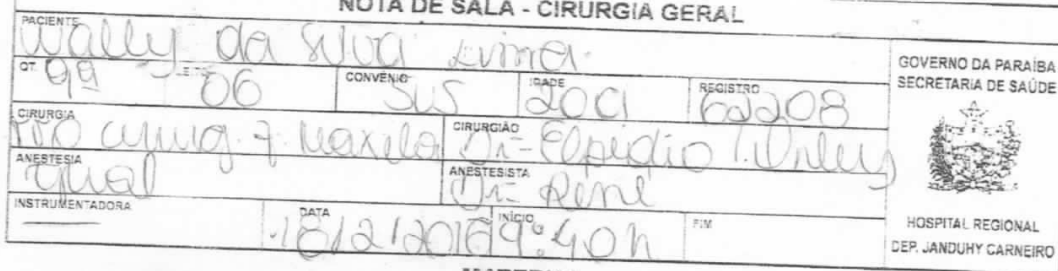 NOTA DE SALA - CIRURGIA GERAL
PACIENTE
Wally da Silva Lima
QT. 09 LEITO 06 CONVÊNIO SUS IDADE 20a REGISTRO 62208
CIRURGIA F. Maxila CIRURGIÃO Dr- Elpidio
ANESTESIA Geral ANESTESISTA Dr- Rene
INSTRUMENTADORA DATA INÍCIO 19:40h FIM
GOVERNO DA PARAÍBA
SECRETARIA DE SAÚDE
HOSPITAL REGIONAL
DEP. JANDUHY CARNEIRO